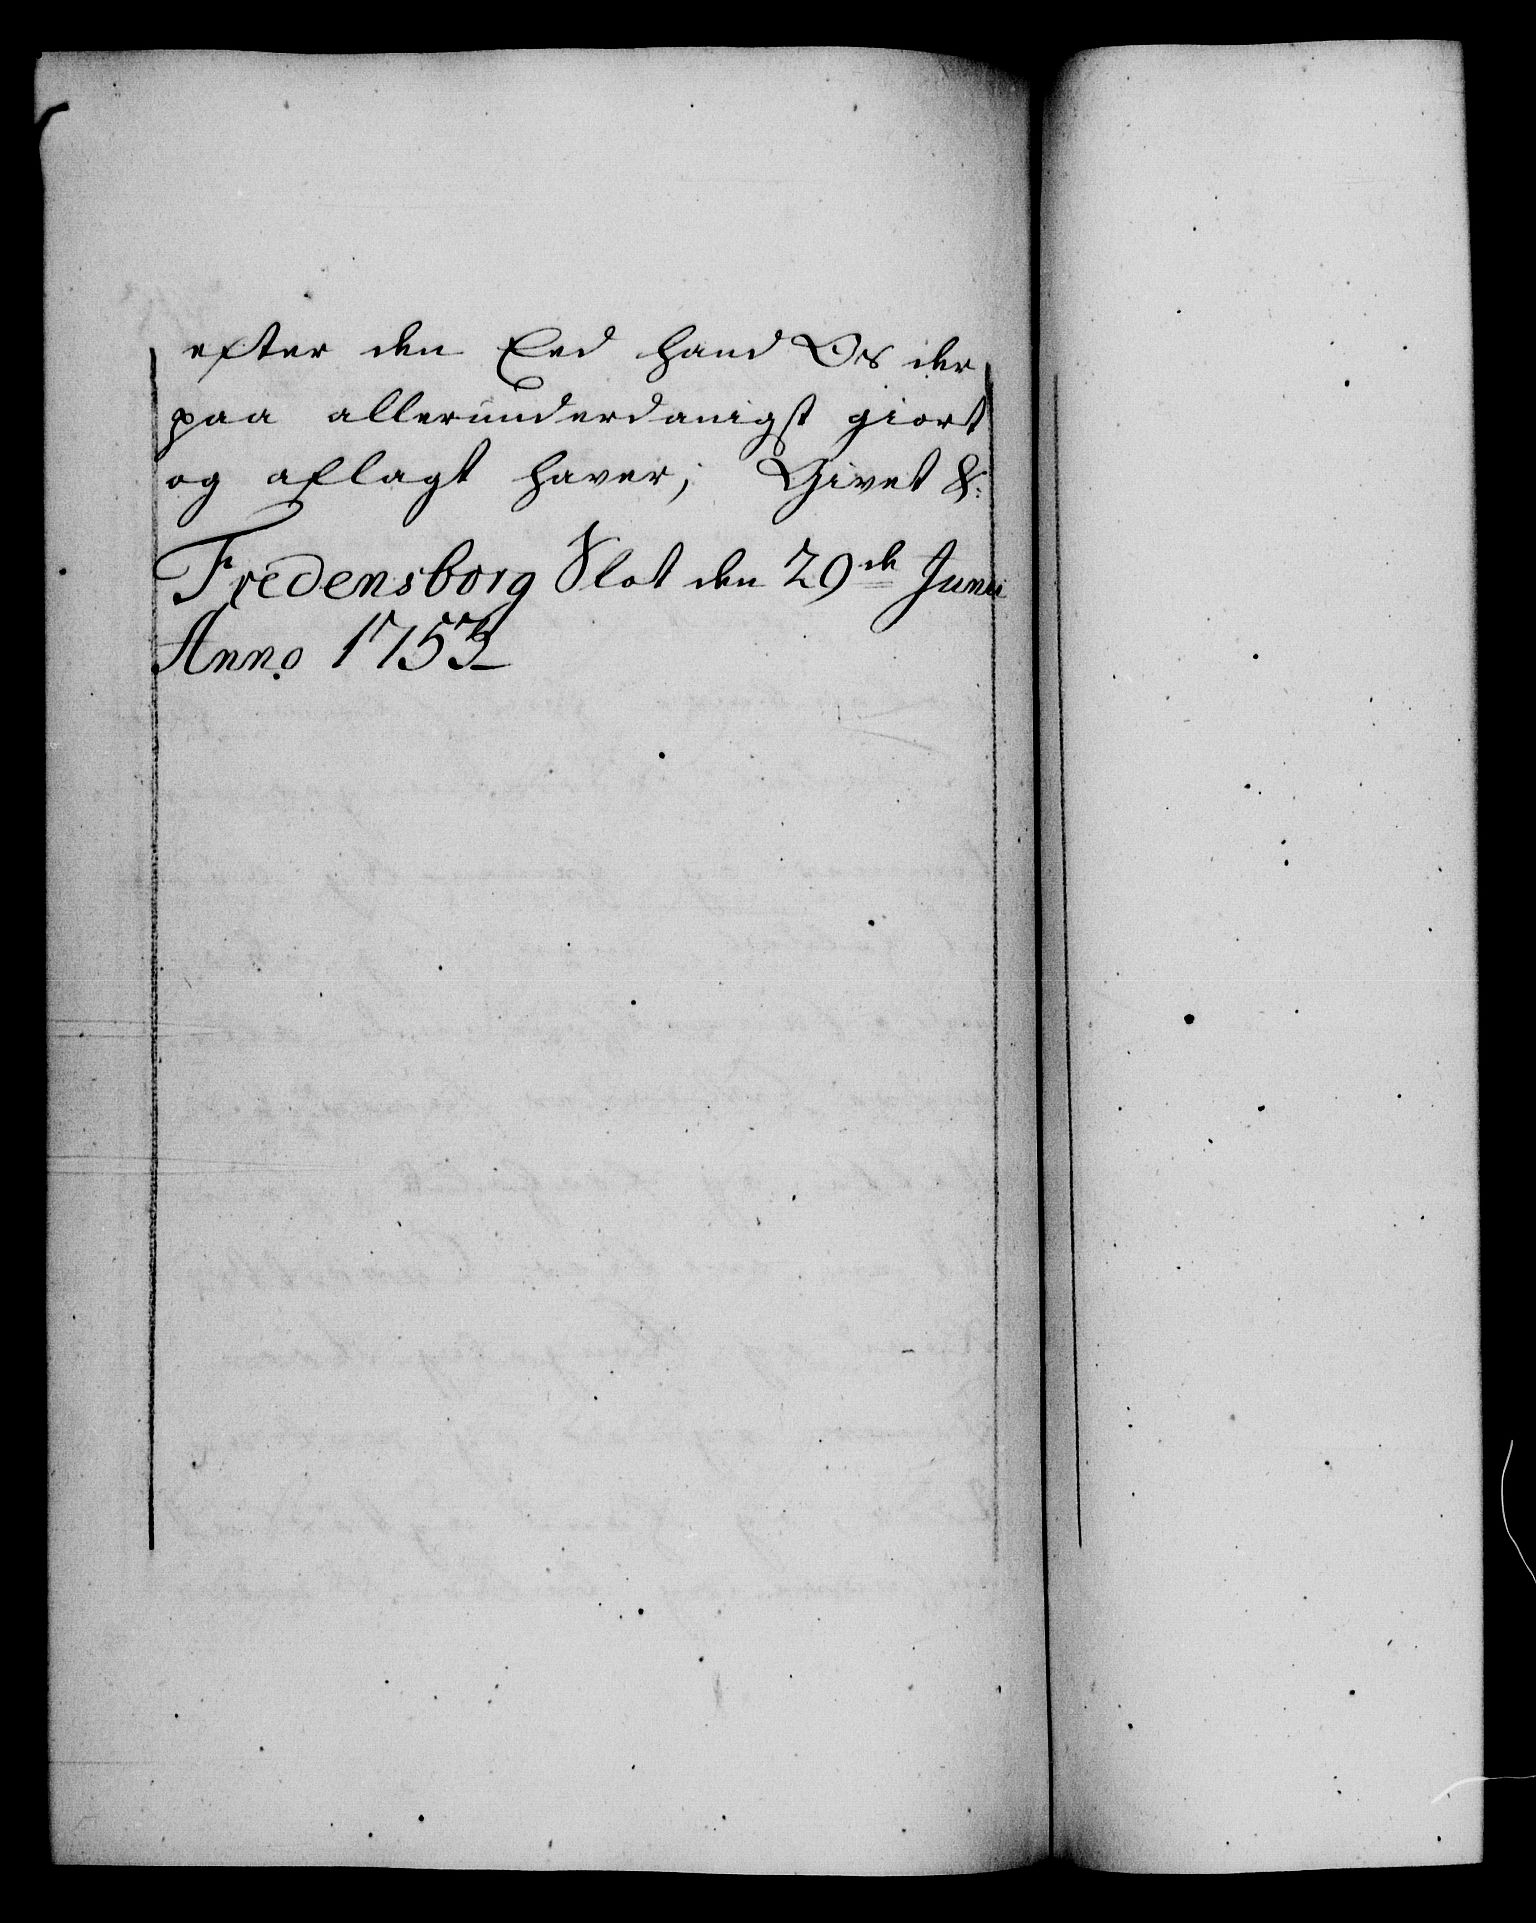 efter den Eed hand Os der
paa allerunderdanigst giort
og aflagt haver; Givet &:
Fredensborg Slot den 29de Junii
Anno 1753